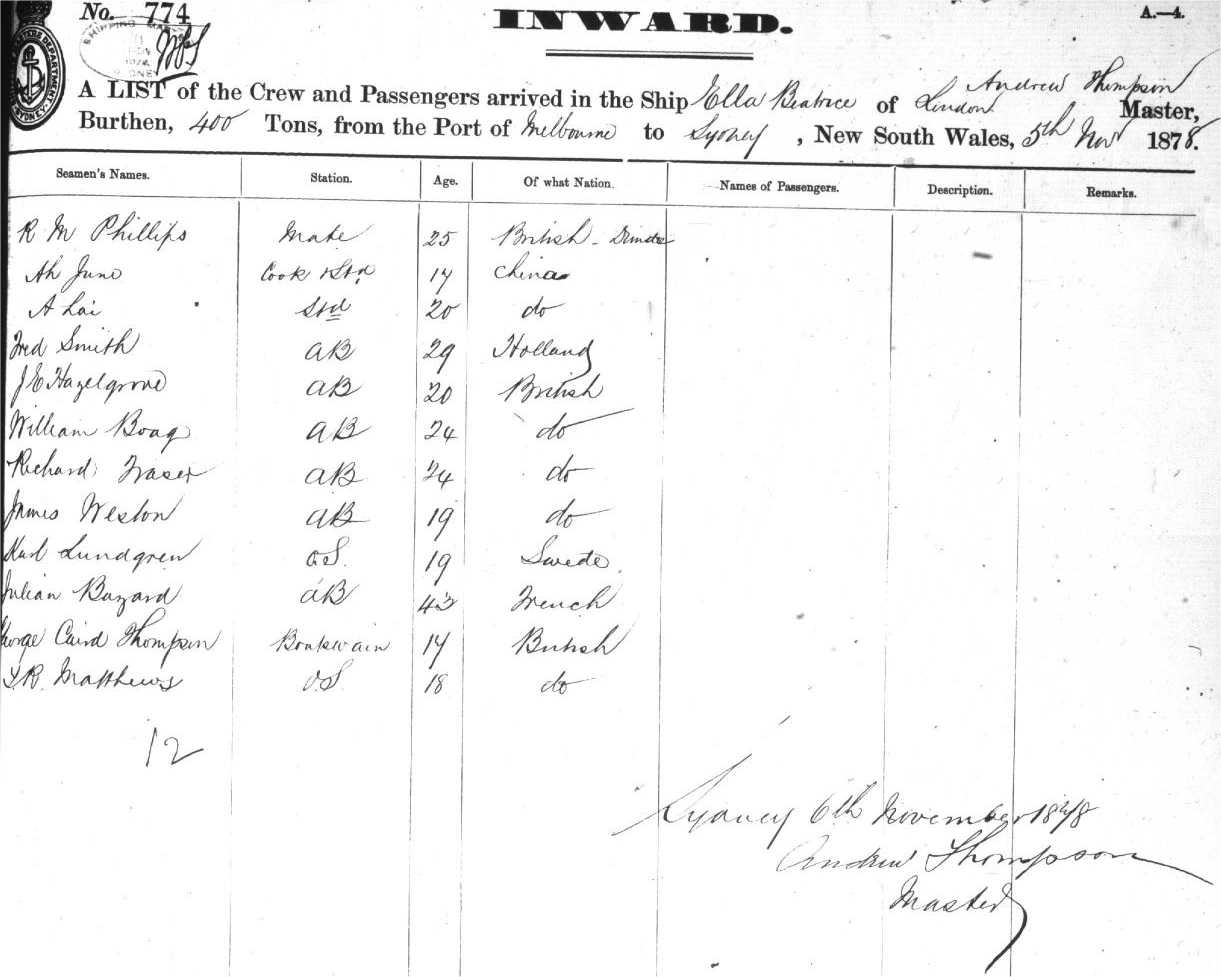 No. 774
INWARD.
A.—4.
A LIST of the Crew and Passengers arrived in the Ship Ella Beatrice of London Andrew Thompson Master,
Burthen, 400 Tons, from the Port of Melbourne to Sydney, New South Wales, 5th Novr 1878.
Seamen's Names. Station. Age. Of what Nation. Names of Passengers. Description. Remarks.
R M Phillips Mate 25 British - Dundee
Ah June Cook & Std 17 China
A Lai Std 20 do
Fred Smith AB 29 Holland
J E Hazelgrove AB 20 British
William Boag AB 24 do
Richard Fraser AB 24 do
James Weston AB 19 do
Karl Lundgren O.S. 19 Swede
Julian Bazard AB 43 French
George Caird Thompson Boatswain 17 British
R. Matthews O.S. 18 do
12
Sydney 6th November 1878
Andrew Thompson
Master